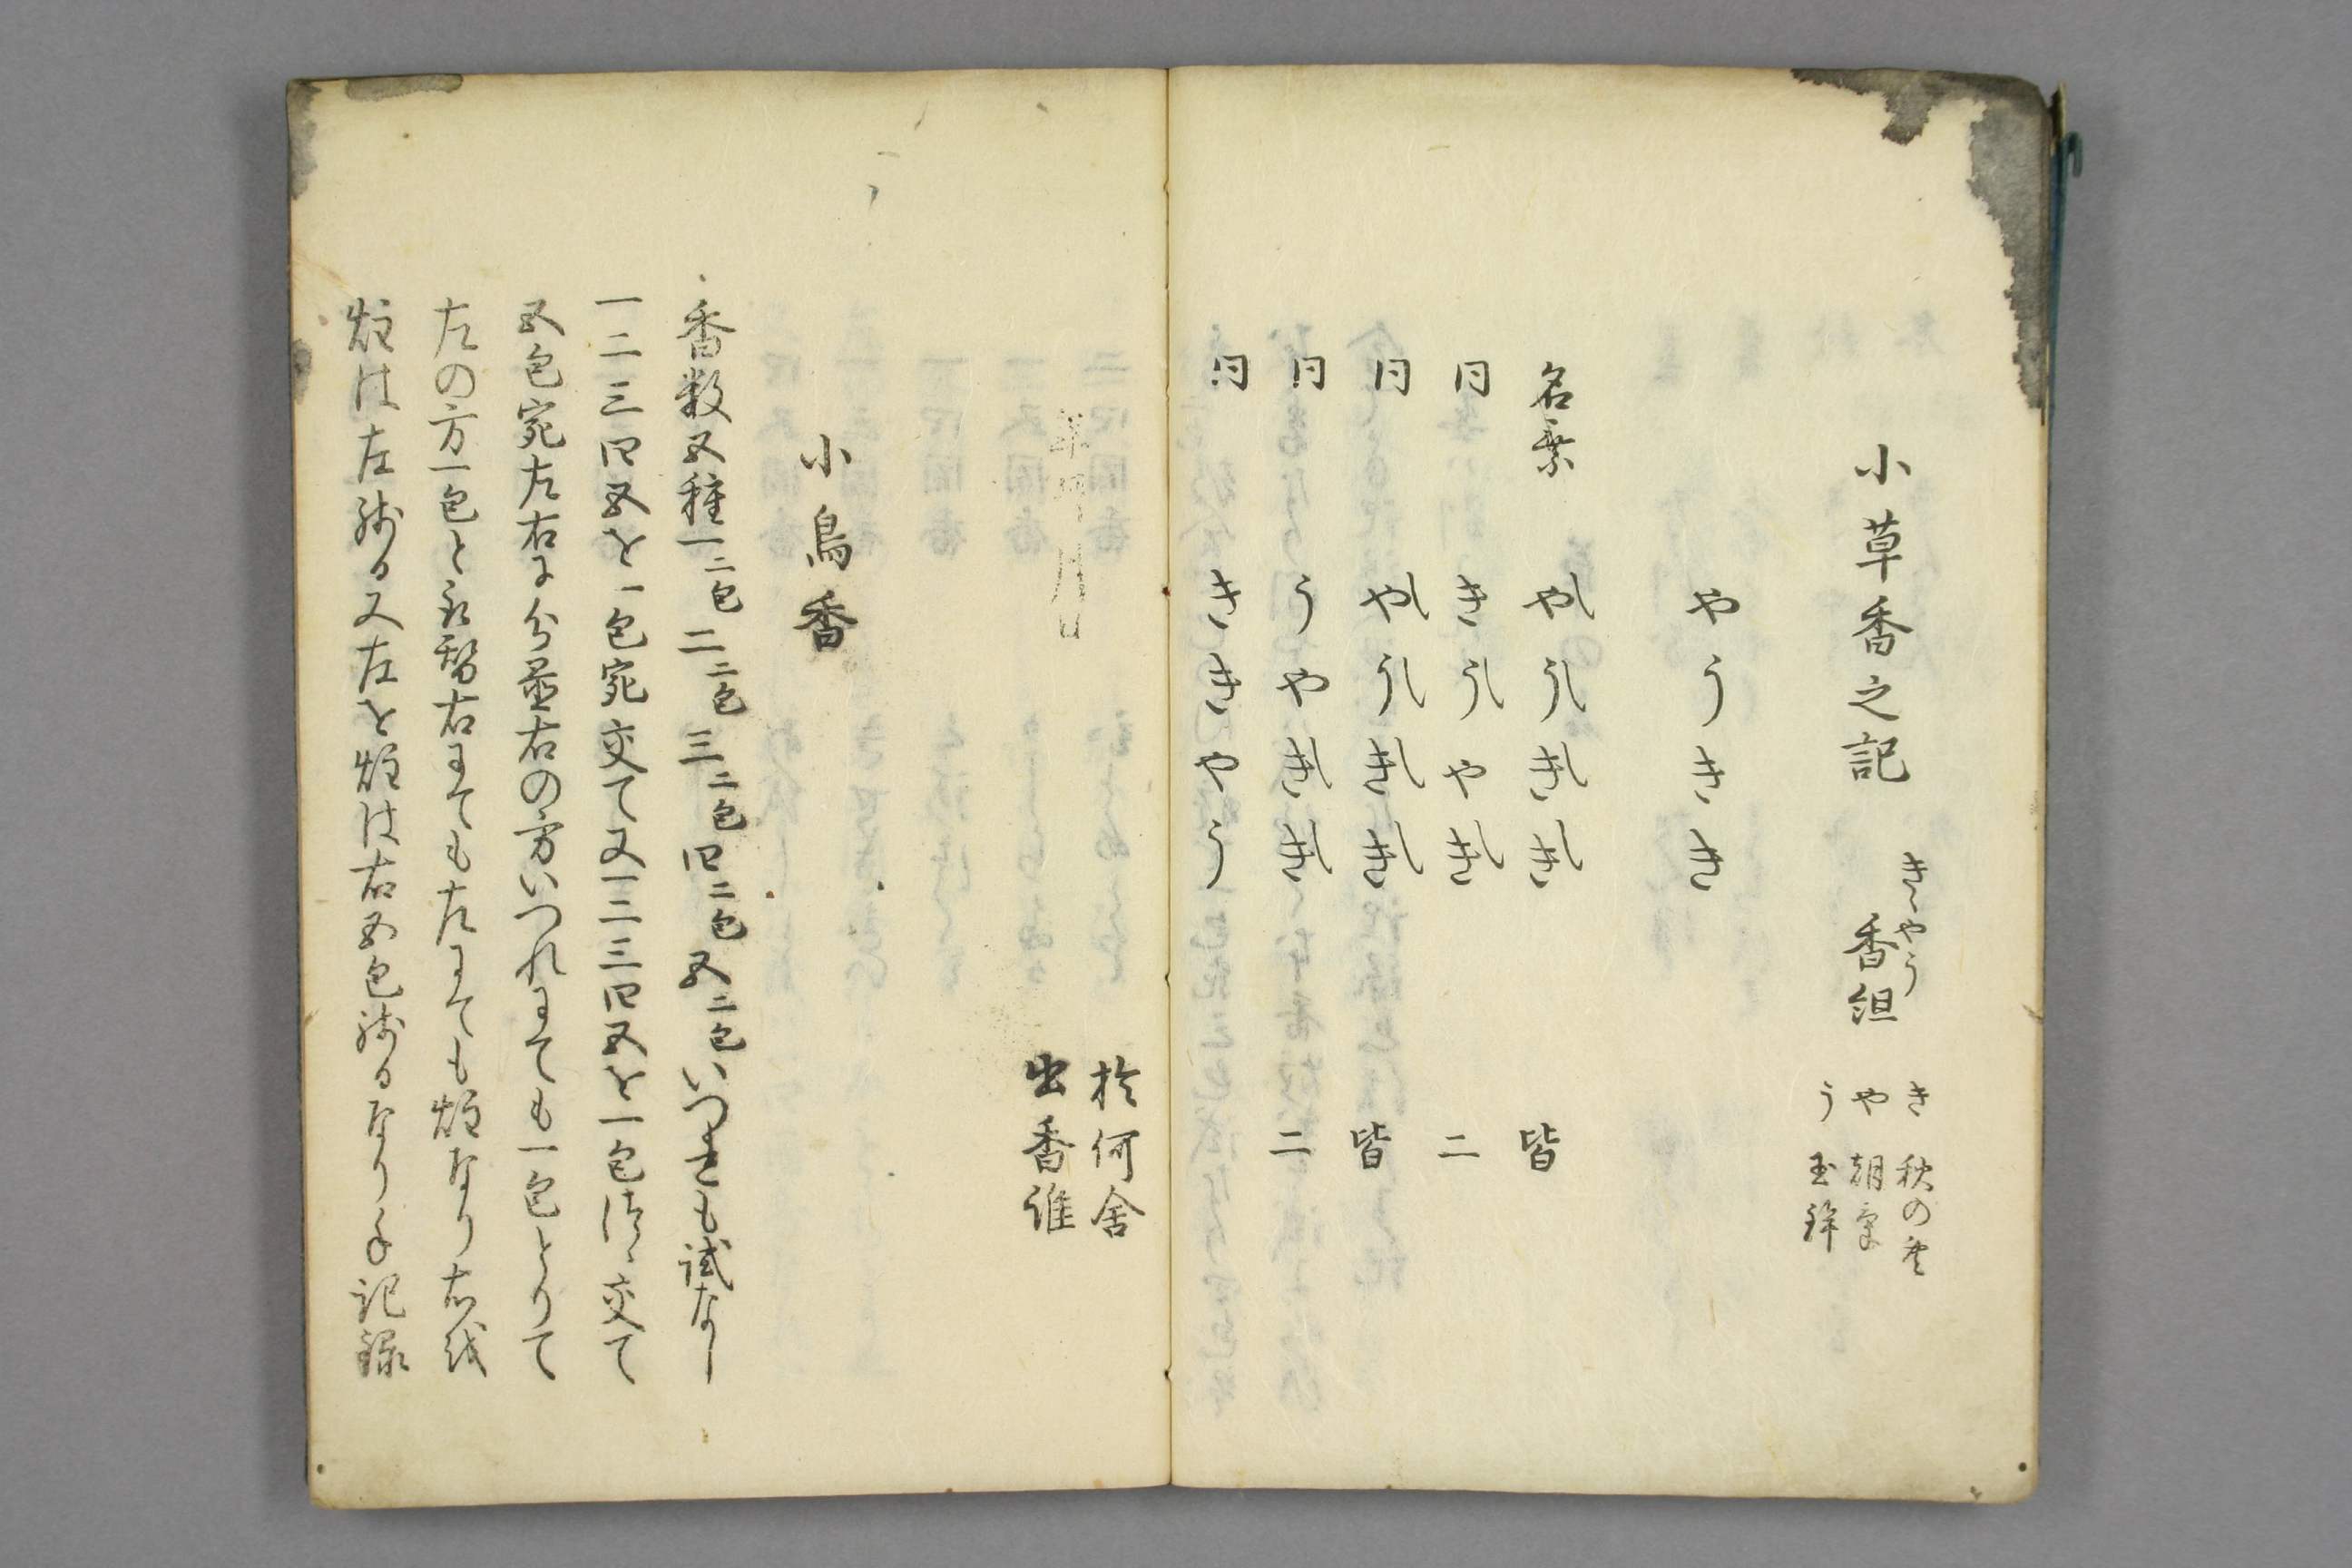 小草香之記
きゝやう
香組
き 秋の
や 朝
う 玉鉾
やうきき
名乗 やうきき 皆
同 きうやき 二
同 やうきき 皆
同 うやきき 二
同 ききやう
於何舎
出香誰
年 月 日
小鳥香
香数五種一二包二二包三二包四二包五二包いつれも試なし
一二三四五を一包宛交て又一二三四五を一包宛交て
五包宛左右に分置右の方いつれにても一包とりて
左の方一包と右にても左にても炷なり右を
炷は左残る又左を炷は右五包残るなり記録